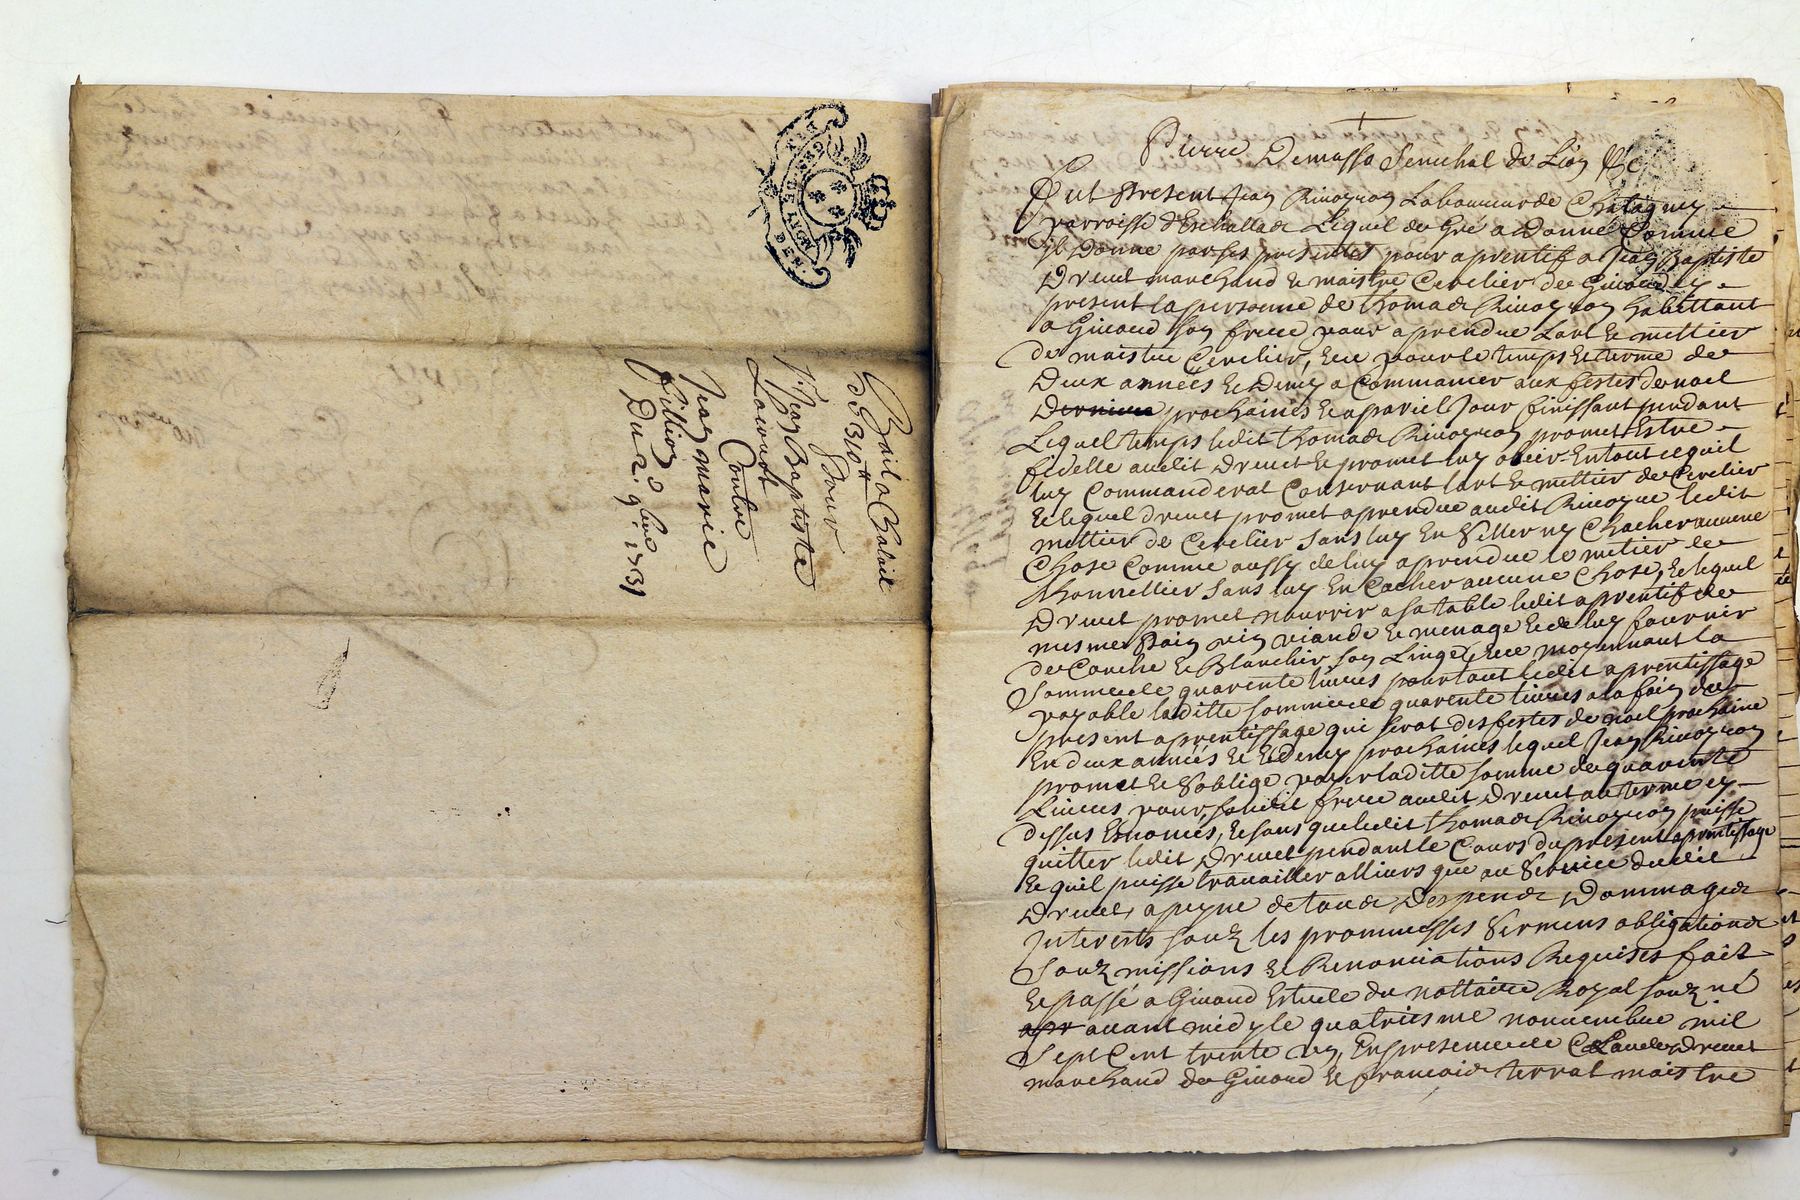 GEN. DE LION
Bail a Chatail
de 310 ᵗᵗ
pour
Jean Baptiste
Lacourt
Contre
Jean marie
fillion
Du 2. 9bre 1731
Pierre Demasso Senechal de Lion &c
fut present Jean Rivoyron Laboureur de Chatagny
parroisse d'Eschallade Lequel de Gré a Donné Comme
il Donne par ses presentes pour aprentif a Jean Baptiste
Drevet marchand & maistre Cerclier de Givord cy
present la personne de thomas Rivoyron habittant
a Givord son frere pour aprendre L'art & mettier
de maistre Cerclier, & ce pour le temps & terme de
Deux années & Demy a Commancer aux festes de noel
Dernieres prochaines & a pariel Jour finissant pendant
Lequel temps ledit thomas Rivoyron promet Estre
fidelle audit Drevet & promet luy obeir En tout ce quil
luy Commanderat Consernant l'art & mettier de Cerclier
& lequel drevet promet aprendre audit Rivoyre ledit
mettier de Cerclier sans luy En Seller ny Chacher aucune
Chose Comme aussy de luy aprendre le metier de
thonnellier sans luy En Cacher aucune Chose, & lequel
Drevet promet nourrir a sa table ledit aprentif de
mesme Pain vin viande & menage & de luy fournir
de Couche & Blanchir son Linge & ce moyennant la
Somme de quarente livres pour tout ledit aprentissage
payable laditte somme de quarente livres a la fain du
present aprentissage qui serat des festes de noel prochaine
En deux années & & demy prochaines lequel Jean Rivoyron
promet & S'oblige payer laditte somme de quarente
Livres pour sondit frere audit Drevet au terme cy
dessus Enoncés, & sans que ledit thomas Rivoyron puisse
quitter ledit Drevet pendant le Cours du present aprentissage
& quil puisse travailler allieurs que au Service dudit
Drevet, a peyne de tous Despens Dommages
Interests souz les promesses Sermens obligations
Souz missions & Renonciations Requises fait
& passé a Givord Estude du nottaire Royal souz né
apr avant midy le quatriesme novvembre mil
Sept Cent trente un, En presence de Claude Drevet
marchand de Givord & francois terrat maistre